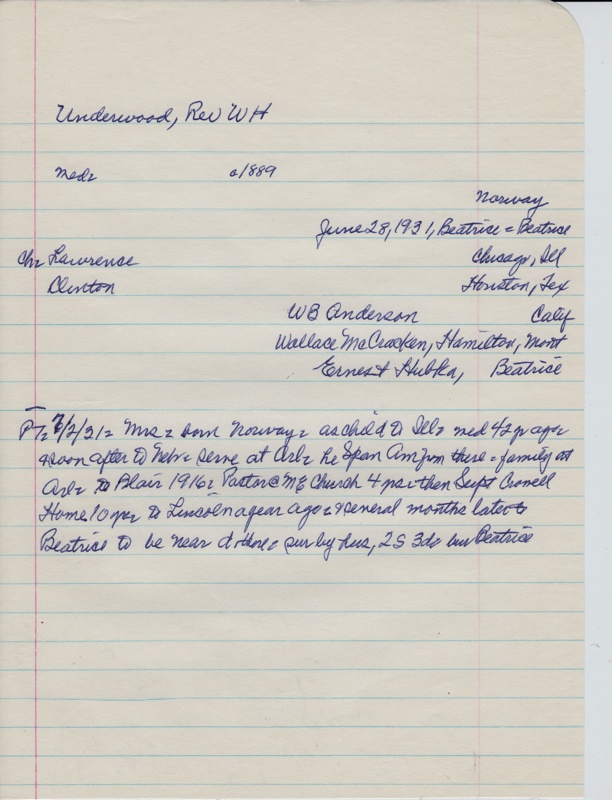 Underwood, Rev WH
Med= c/1889
Norway
June 28, 1931, Beatrice = Beatrice
Ch= Lawrence Chicago, Ill
Clinton Houston, Tex
WB Anderson Calif
Wallace McCracken, Hamilton, Mont
Ernest Hubka, Beatrice
PT= 7/2/31= Mrs = born Norway= as child to Ill= med 42 y ago=
& soon after to Nebr= serve at Arl= he Span Am frm there = family at
Arl= to Blair 1916= Pastor @ ME Church 4 yrs= then Supt Crowell
Home 10 yrs= to Lincoln a year ago= & several months later to
Beatrice to be near d there= sur by hus, 2S 3ds bur Beatrice